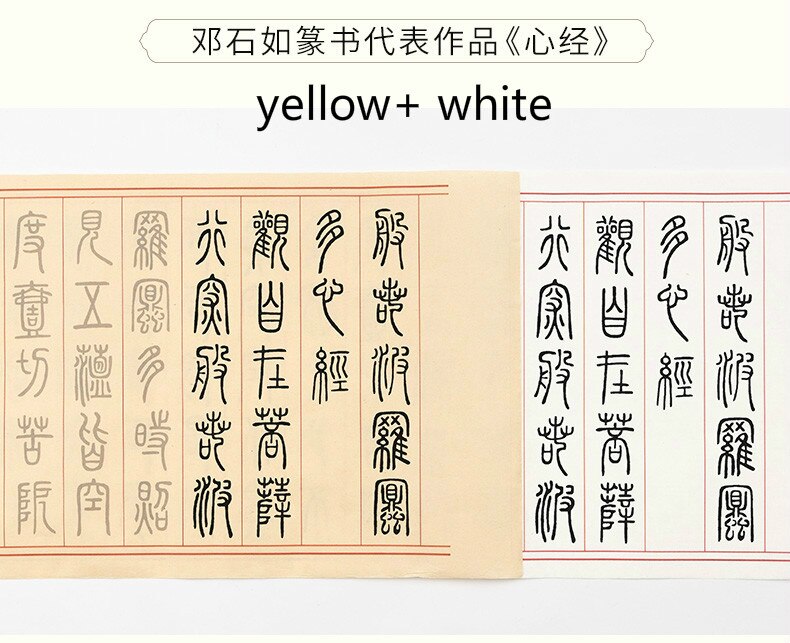 邓石如篆书代表作品《心经》
yellow+ white
般若波羅蜜
多心經
觀自在菩薩
行深般若波
羅蜜多時照
見五蘊皆空
度壹切苦阨
般若波羅蜜
多心經
觀自在菩薩
行深般若波